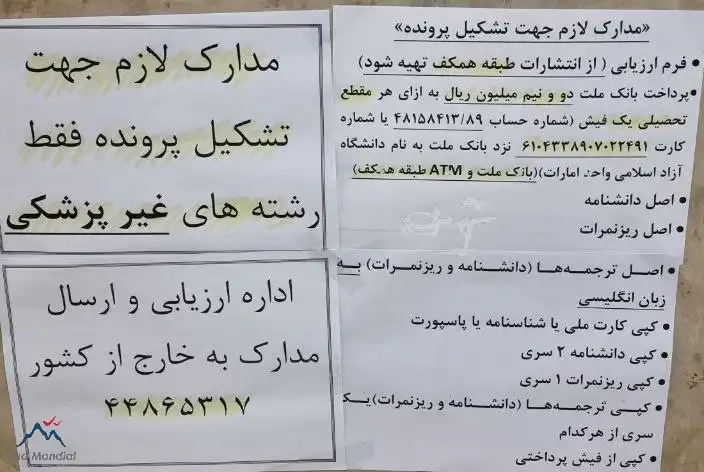 مدارک لازم جهت
تشکیل پرونده فقط
رشته های غیر پزشکی
«مدارک لازم جهت تشکیل پرونده»
• فرم ارزیابی ( از انتشارات طبقه همکف تهیه شود)
• پرداخت بانک ملت دو و نیم میلیون ریال به ازای هر مقطع
تحصیلی یک فیش (شماره حساب ۴۸۱۵۸۴۱۳/۸۹ یا شماره
کارت ۶۱۰۴۳۳۸۹۰۷۰۲۲۴۹۱ نزد بانک ملت به نام دانشگاه
آزاد اسلامی واحد امارات)(بانک ملت و ATM طبقه همکف)
• اصل دانشنامه
• اصل ریزنمرات
اداره ارزیابی و ارسال
مدارک به خارج از کشور
۴۴۸۶۵۳۱۷
• اصل ترجمه‌ها (دانشنامه و ریزنمرات) به
زبان انگلیسی
• کپی کارت ملی یا شناسنامه یا پاسپورت
• کپی دانشنامه ۲ سری
• کپی ریزنمرات ۱ سری
• کپی ترجمه‌ها (دانشنامه و ریزنمرات) یک
سری از هرکدام
• کپی از فیش پرداختی
Mondial